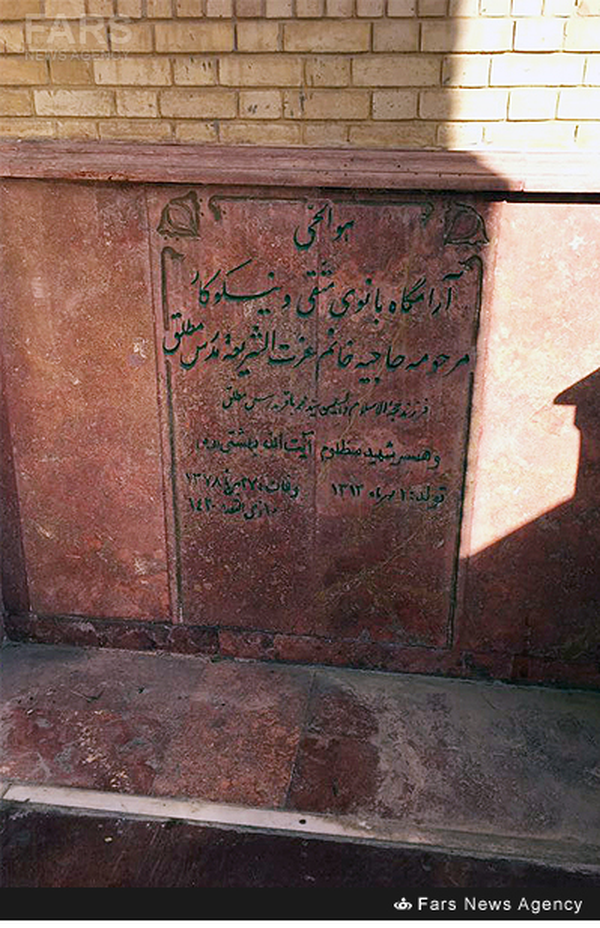 FARS
NEWS AGENCY
هوالحی
آرامگاه بانوی متقی و نیکوکار
مرحومه حاجیه خانم عزت الشریعة مدرس مطلق
فرزند حجة الاسلام والمسلمین سید محمد باقر مدرس مطلق
و همسر شهید مظلوم آیت الله بهشتی
تولد: ۱ مهرماه ۱۳۱۳ وفات: ۲۷ بهمن ۱۳۷۸
۱۰ ذی القعده ۱۴۲۰
Fars News Agency